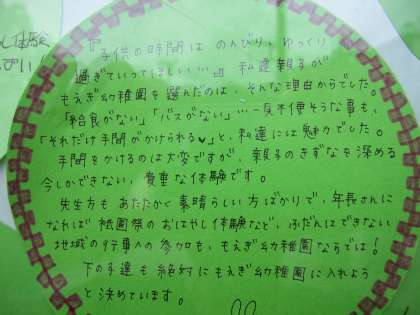 し体験
ぷり!
『子供の時間は のんびり、ゆっくり
過ぎていってほしい…』 私達親子が
もえぎ幼稚園を選んだのは、そんな理由からでした。
「給食がない」「バスがない」… 一見不便そうな事も、
「それだけ手間がかけられる♥」と、私達には魅力でした。
手間をかけるのは大変ですが、親子のきずなを深める
今しかできない、貴重な体験です。
先生方も あたたかく 素晴らしい方ばかりで、年長さんに
なれば 祇園祭のおはやし体験など、ふだんはできない
地域の行事への参加も、もえぎ幼稚園ならでは!
下の子達も 絶対に もえぎ幼稚園に入れよう
と 決めています。